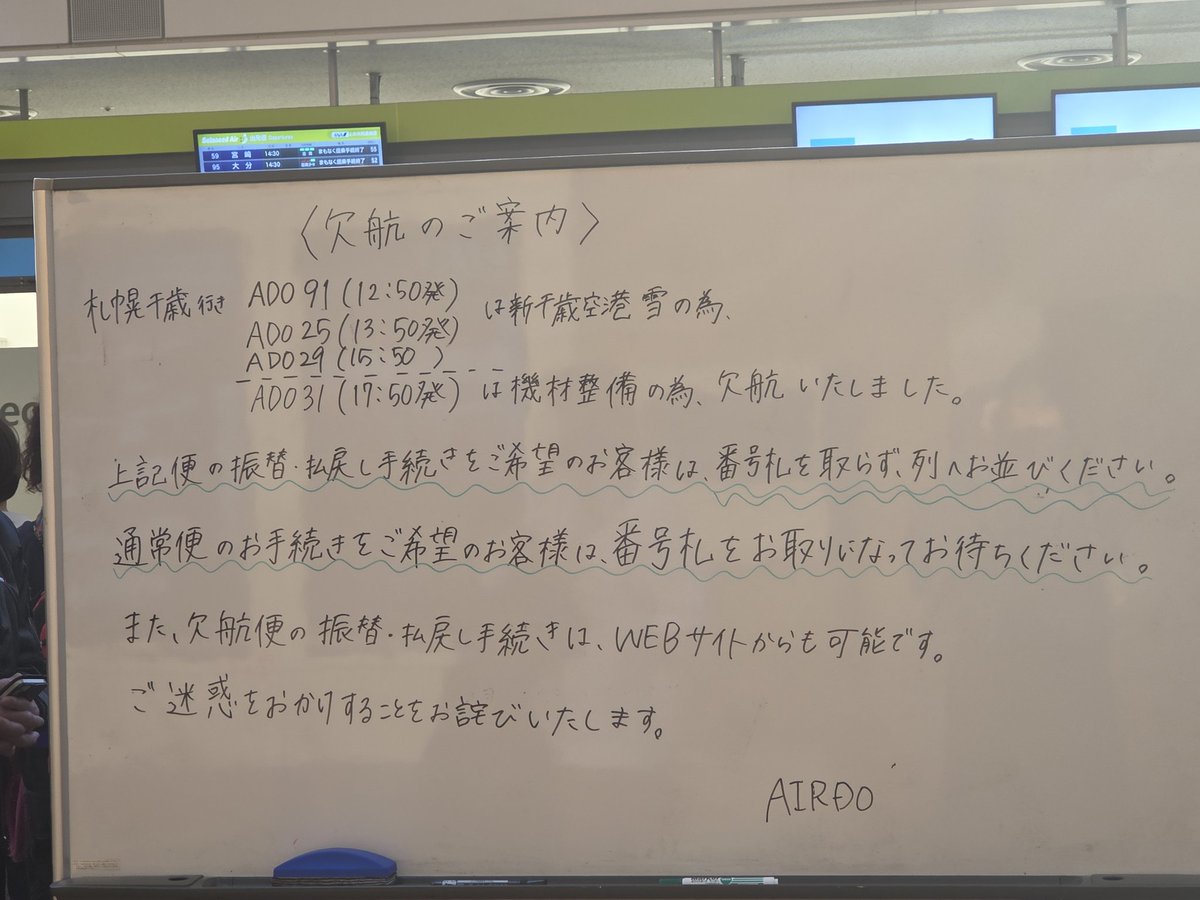 Solaseed Air 出発便 Departures
59 宮崎 14:30 まもなく搭乗手続終了 55
95 大分 14:30 まもなく搭乗手続終了 52
〈欠航のご案内〉
札幌千歳行き ADO 91 (12:50発) は新千歳空港 雪の為、
ADO 25 (13:50発)
ADO 29 (15:50 )
ADO 31 (17:50発) は機材整備の為、欠航いたしました。
上記便の振替・払戻し手続きをご希望のお客様は、番号札を取らず、列へお並びください。
通常便のお手続きをご希望のお客様は、番号札をお取りになってお待ちください。
また、欠航便の振替・払戻し手続きは、WEBサイトからも可能です。
ご迷惑をおかけすることをお詫びいたします。
AIRDO